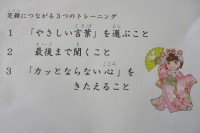 笑顔につながる３つのトレーニング
１ 「やさしい言葉」を選ぶこと
２ 最後まで聞くこと
３ 「カッとならない心」を
きたえること